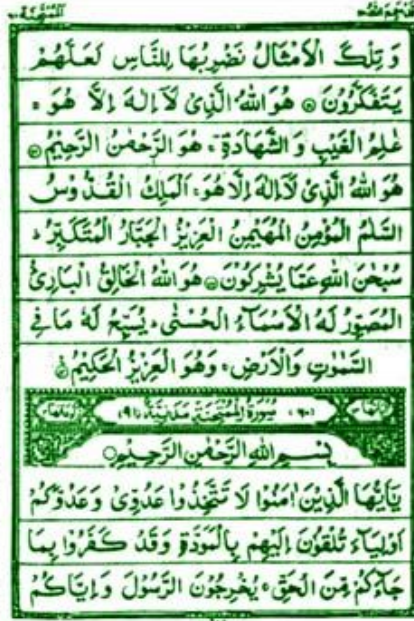 وَ تِلْكَ الْاَمْثَالُ نَضْرِبُهَا لِلنَّاسِ لَعَلَّهُمْ
يَتَفَكَّرُوْنَ ۝ هُوَ اللهُ الَّذِىْ لَآ اِلٰهَ اِلَّا هُوَ ۚ
عٰلِمُ الْغَيْبِ وَ الشَّهَادَةِ ۚ هُوَ الرَّحْمٰنُ الرَّحِيْمُ ۝
هُوَ اللهُ الَّذِىْ لَآ اِلٰهَ اِلَّا هُوَ ۚ اَلْمَلِكُ الْقُدُّوْسُ
السَّلٰمُ الْمُؤْمِنُ الْمُهَيْمِنُ الْعَزِيْزُ الْجَبَّارُ الْمُتَكَبِّرُ ؕ
سُبْحٰنَ اللهِ عَمَّا يُشْرِكُوْنَ ۝ هُوَ اللهُ الْخَالِقُ الْبَارِئُ
الْمُصَوِّرُ لَهُ الْاَسْمَآءُ الْحُسْنٰى ؕ يُسَبِّحُ لَهٗ مَا فِى
السَّمٰوٰتِ وَالْاَرْضِ ۚ وَهُوَ الْعَزِيْزُ الْحَكِيْمُ ۝
(٦٠) سُوْرَةُ الْمُمْتَحِنَةِ مَدَنِيَّةٌ (٩١)
بِسْمِ اللهِ الرَّحْمٰنِ الرَّحِيْمِ ۝
يٰٓاَيُّهَا الَّذِيْنَ اٰمَنُوْا لَا تَتَّخِذُوْا عَدُوِّىْ وَعَدُوَّكُمْ
اَوْلِيَآءَ تُلْقُوْنَ اِلَيْهِمْ بِالْمَوَدَّةِ وَقَدْ كَفَرُوْا بِمَا
جَآءَكُمْ مِّنَ الْحَقِّ ۚ يُخْرِجُوْنَ الرَّسُوْلَ وَاِيَّاكُمْ